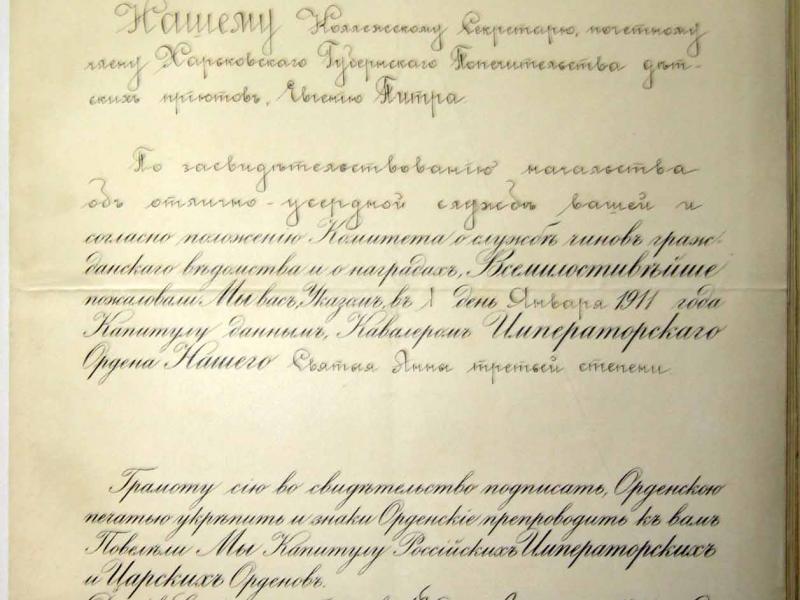 Нашему Коллежскому Секретарю, почетному
члену Харьковскаго Губернскаго Попечительства дѣт-
скихъ прiютовъ, Евгенiю Питра.
По засвидѣтельствованiю начальства
объ отлично-усердной службѣ вашей и
согласно положенiю Комитета о службѣ чиновъ граж-
данскаго вѣдомства и о наградахъ, Всемилостивѣйше
пожаловали Мы васъ, Указомъ, въ 1 день Января 1911 года
Капитулу даннымъ, Кавалеромъ Императорскаго
Ордена Нашего Святыя Анны третьей степени.
Грамоту сiю во свидѣтельство подписать, Орденскою
печатью укрѣпить и знаки Орденскiе препроводить къ вамъ
Повелѣли Мы Капитулу Россiйскихъ Императорскихъ
и Царскихъ Орденовъ.